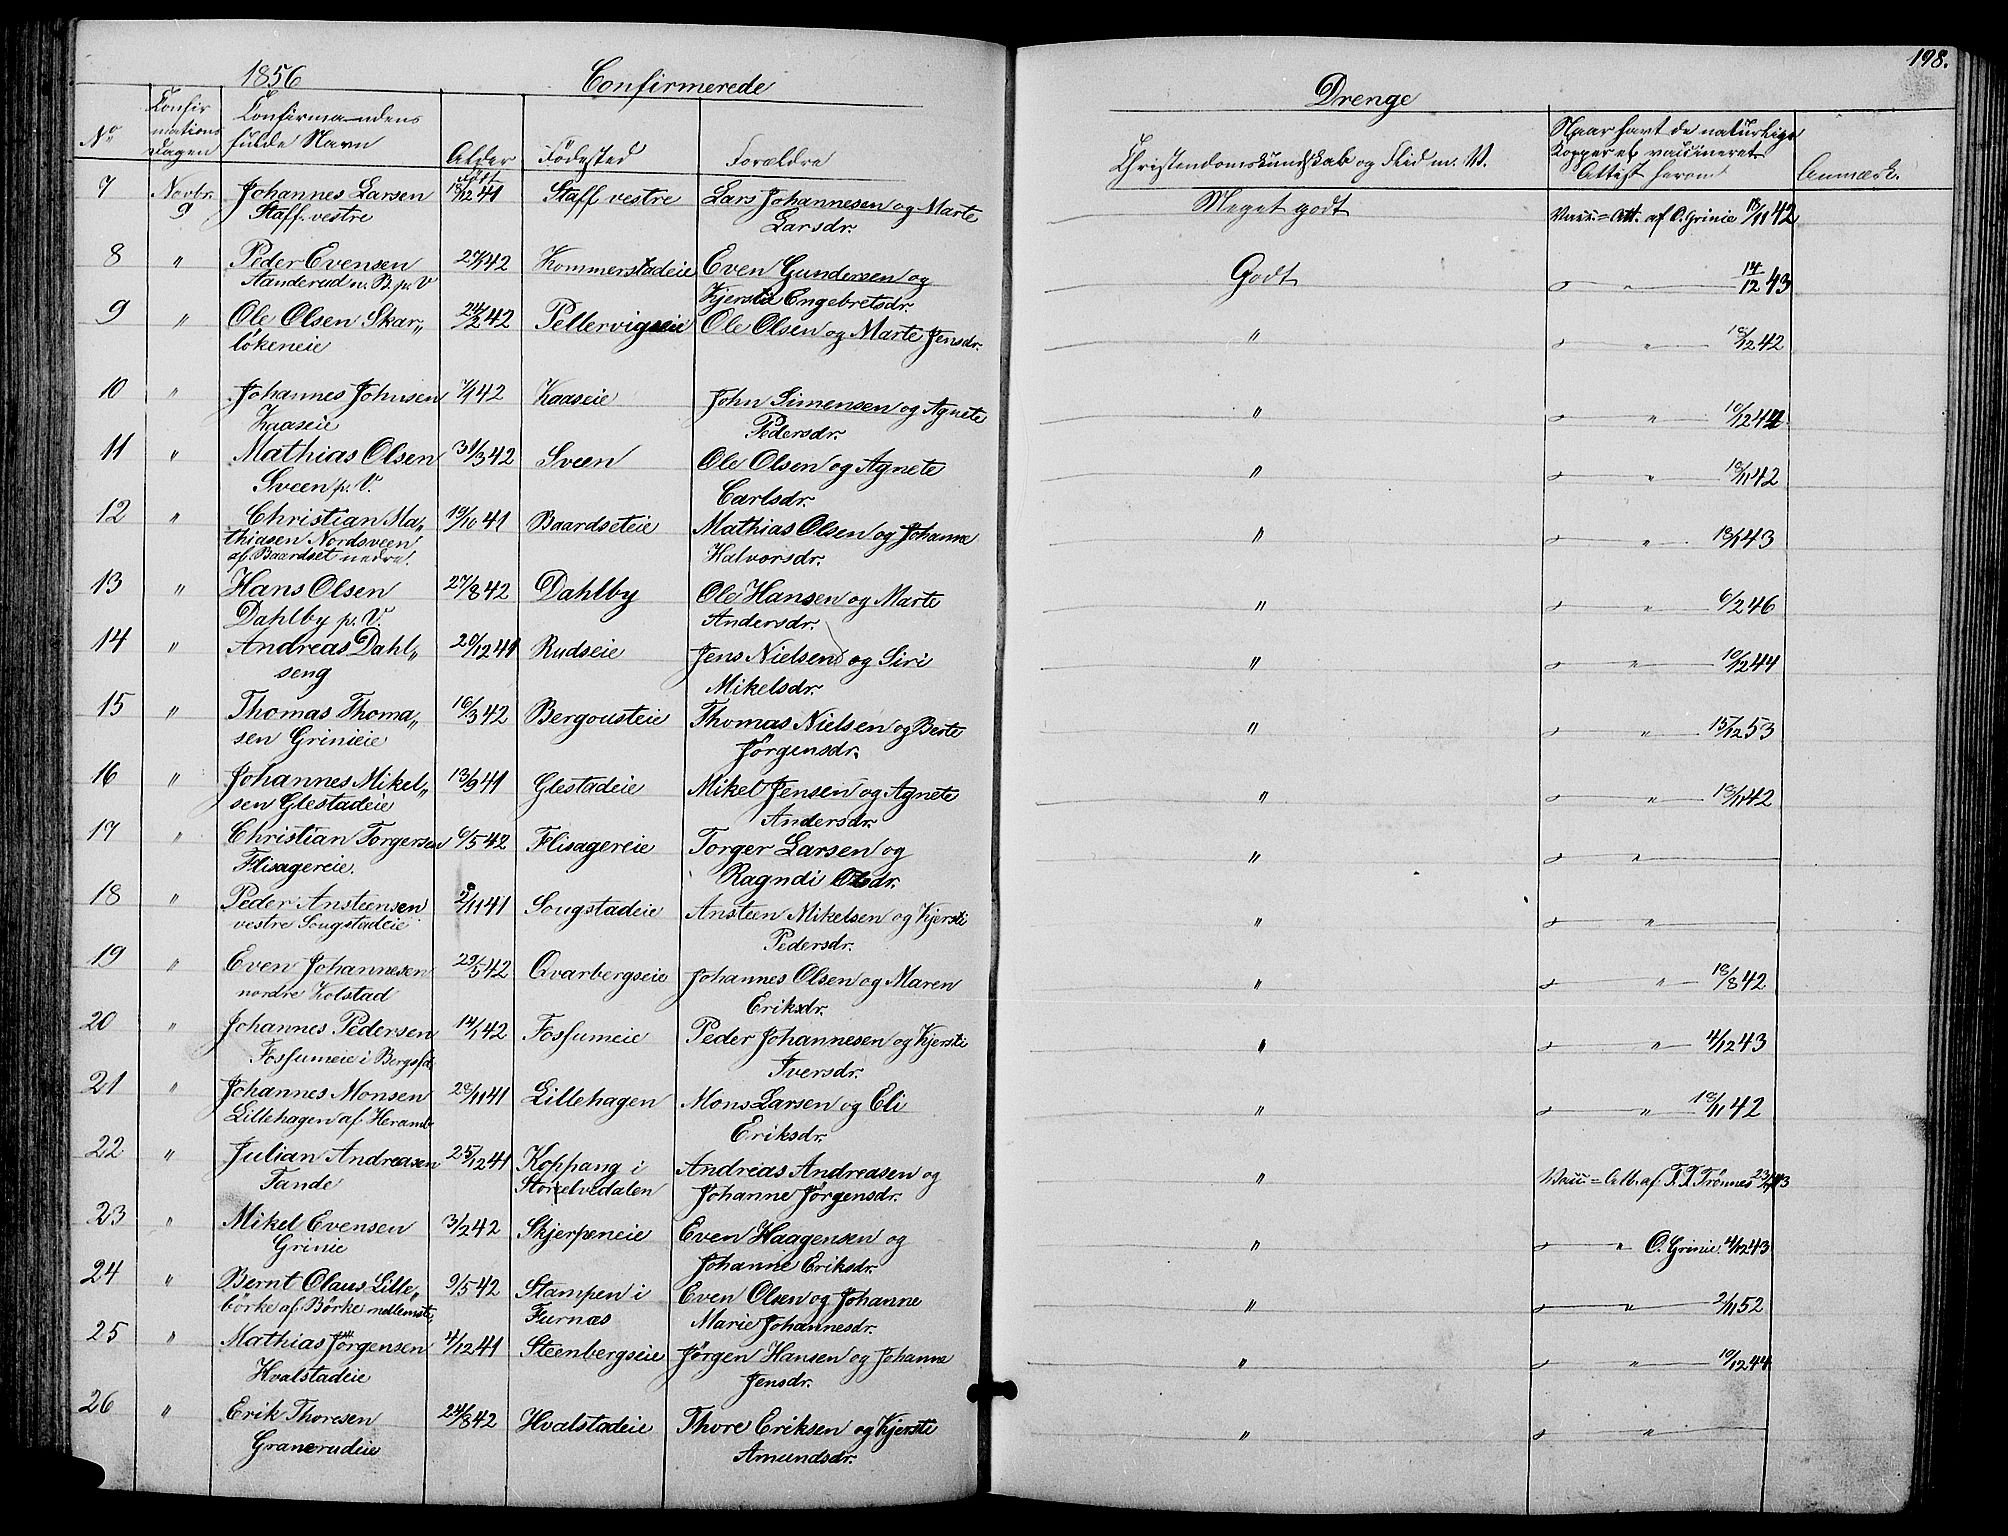 198.
1856 Confirmerede Drenge
No Confirmations Dagen Confirmandens fulde Navn Alder Födested Forældre Christendomskundskab og Flid m. V. Naar havt de naturlige Kopper el. vaccineret Attest herom Anmærk.
født
7 Novbr. 9 Johannes Larsen 18/12 41 Staff vestre Lars Johannesen og Marte Meget godt Vacc.= Att. af O. Grinie 18/11 42
Staff vestre Larsdr.
8 " Peder Evensen 42 Kommerstadeie Even Gundersen og Godt " 14/12 43
Aanderud n. B. p. V Kjersti Engebretsdr.
9 " Ole Olsen Skar„ 24/2 42 Pellervigseie Ole Olsen og Marte Jensdr. " " 10/12 42
lökeneie
10 " Johannes Johnsen 7/1 42 Kaaseie John Simensen og Agnete " " 10/12 44
Kaaseie Pedersdr.
11 " Mathias Olsen 31/3 42 Sveen Ole Olsen og Agnete " " 18/11 42
Sveen p. V. Carlsdr.
12 " Christian Ma„ 19/10 41 Baardseteie Mathias Olsen og Johanne " " 43
thiasen Nordsveen Halvorsdr.
af Baardset nedre.
13 " Hans Olsen 27/8 42 Dahlby Ole Hansen og Marte " " 6/2 46
Dahlby p. V. Andersdr.
14 " Andreas Dahl„ 20/12 41 Rudseie Jens Nielsen og Siri " " 10/12 44
seng Mikelsdr.
15 " Thomas Thoma„ 16/3 42 Bergousteie Thomas Nielsen og Berte " " 15/12 53
sen Grinieie Jørgensdr.
16 " Johannes Mikel„ 13/9 41 Glestadeie Mikel Jensen og Agnete " " 18/11 42
sen Glestadeie Andersdr.
17 " Christian Torgersen 6/5 42 Flisagereie Torger Larsen og " "
Flisagereie. Ragndi Olsdr.
18 " Peder Ansteensen /11 41 Sougstadeie Ansteen Mikelsen og Kjersti " "
vestre Sougstadeie Pedersdr.
19 " Even Johannesen 29/5 42 Qvarbergseie Johannes Olsen og Maren " " 18/8 42
nordre Kolstad Eriksdr.
20 " Johannes Pedersen 14/1 42 Fosfumeie Peder Johannesen og Kjersti " " 4/12 43
Fosfumeie i Iversdr.
21 " Johannes Monsen 28/11 41 Lillehagen Mons Larsen og Eli " " 18/11 42
Lillehagen af Heramb Eriksdr.
22 " Julian Andreasen 25/12 41 Koppang i Andreas Andreasen og " Vacc= Att. af T. T. Trönnes 43
Tande Storelvedalen Johanne Jørgensdr.
23 " Mikel Evensen 3/2 42 Skjerpeneie Even Haagensen og " " O. Grinie. 4/12 43
Grinie Johanne Eriksdr.
24 " Bernt Olaus Lille„ 9/5 42 Stampen i Even Olsen og Johanne " " 2/11 52
börke af Börke mellemste, Furnæs Marie Johannesdr.
25 " Mathias Jörgensen 4/12 41 Steenbergseie Jørgen Hansen og Johanne " " 10/12 44
Hvalstadeie Jensdr.
26 " Erik Thoresen 24/8 42 Hvalstadeie Thore Eriksen og Kjersti " "
Granerudeie Amundsdr.